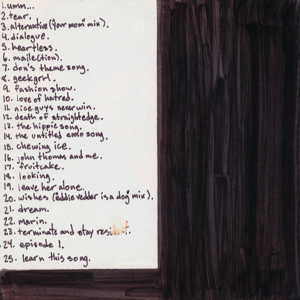 1. umm...
2. tear.
3. alternative ("your mom" mix).
4. dialogue.
5. heartless.
6. maile(tion).
7. don's theme song.
8. geekgrrl.
9. fashion show.
10. love of hatred.
11. nice guys never win.
12. death of straightedge.
13. the hippie song.
14. the untitled emo song.
15. chewing ice.
16. john thomas and me.
17. fruitcake.
18. looking.
19. leave her alone.
20. wishes (eddie vedder is a dog mix).
21. dream.
22. marin.
23. terminate and stay
24. episode 1.
25. learn this song.